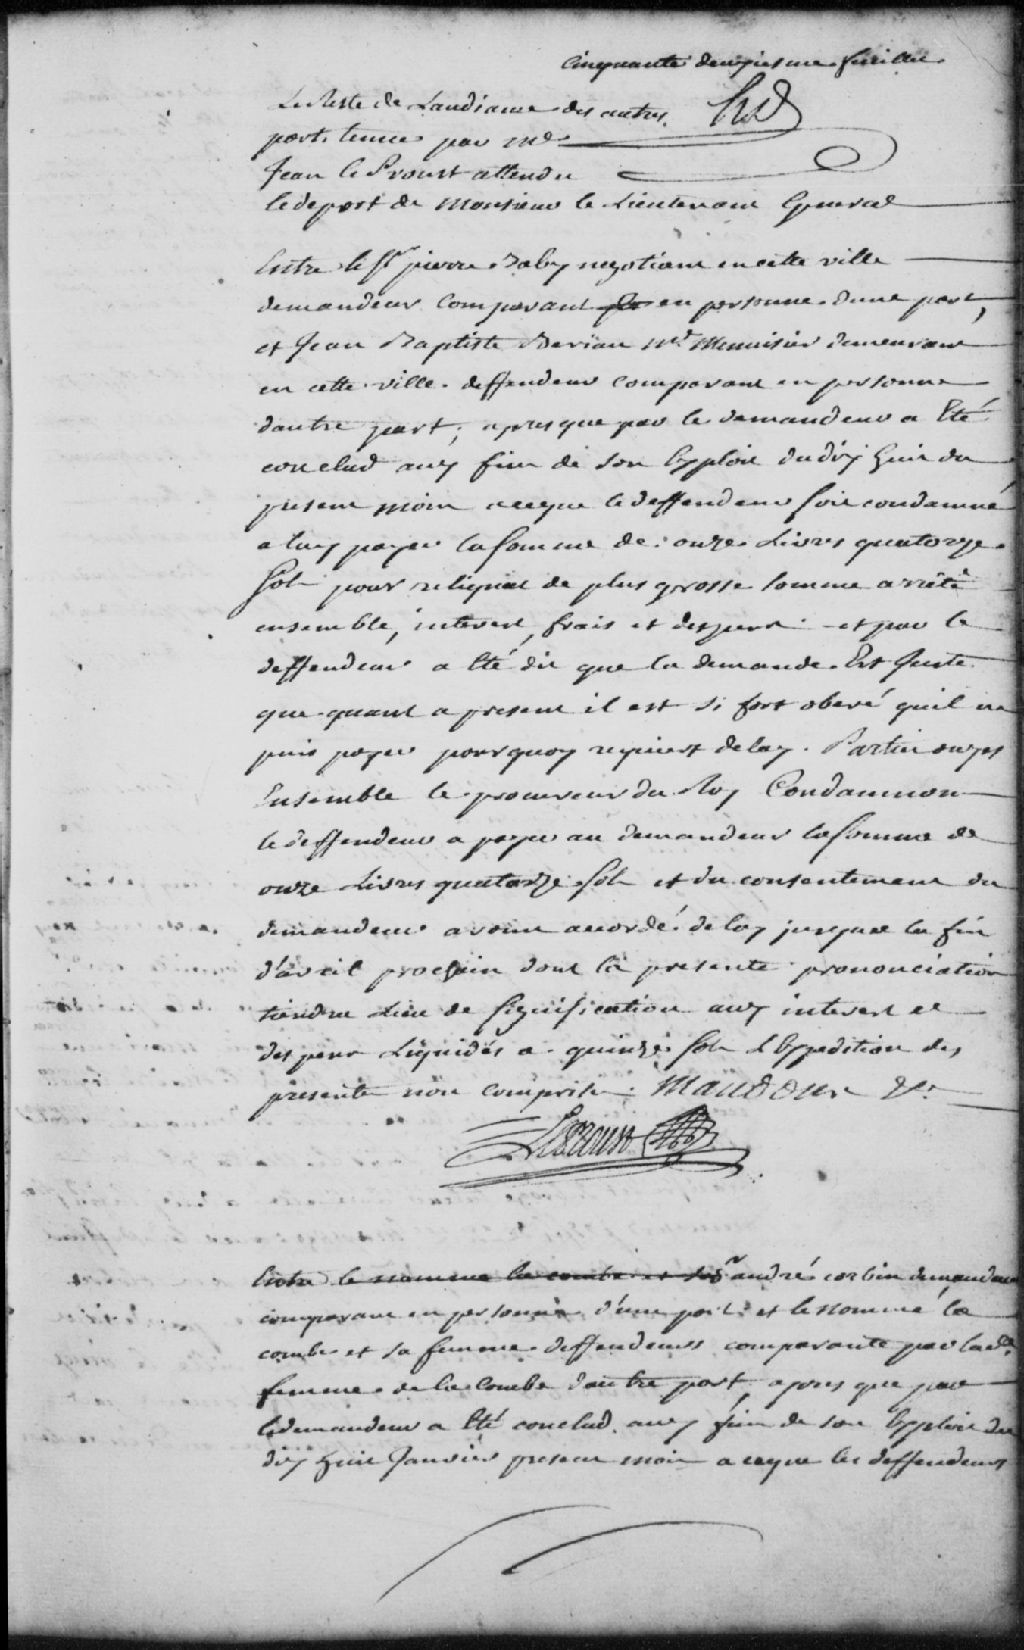 Cinquante deuxiesme feuillet.
Le Reste de Laudiance des autres
part. tenue par Me
Jean le Proust attendu
le deport de Monsieur le Lieutenant General
Entre le Sr pierre Baby negotiant en cette ville
demandeur comparant en personne d'une part,
et Jean Baptiste Berian Md Menuisier demeurant
en cette ville. deffendeur comparant en personne
dautre part; apres que par le demandeur a Eté
conclud aux fins de son Exploit du dix huit du
present mois a ceque le deffendeur soit condamné
a luy payer la somme de onze Livres quatorze
sols pour reliquat de plus grosse somme arrêté
ensemble, interest, frais et despens. et par le
deffendeur a Eté dit que la demande Est Juste
que quant a present il est si fort oberé quil ne
puis payer pourquoy requiert delay. Parties ouyes
Ensemble le procureur du Roy Condamnons
le deffendeur a payer au demandeur la somme de
onze Livres quatorze sols et du consentement du
demandeur avons accordé delay jusqua la fin
d'avril prochain dont la presente prononciation
tiendra Lieu de signification aux interest et
despens Liquidés a quinze sols L'Expedition des
presente non comprise. Mandons &c.
LeProust
Entre le nommé la combe et Sr andré corbin demandeur
comparant en personne d'une part et le nommé la
combe et sa femme deffendeurs comparante par lade
femme de la Combe dautre part, apres que par
le demandeur a Eté conclud aux fins de son Exploit du
dix huit Janvier present mois a ceque les deffendeurs